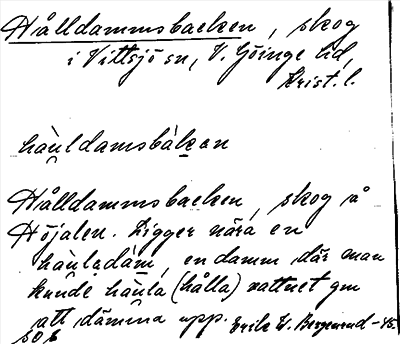 Hålldammsbacken, skog
i Vittsjö sn, V. Göinge hd,
Krist. l.
hàu̯ldamsbàkən
Hålldammsbacken, skog å
Höjalen. Ligger nära en
hàu̯ladàm, en damm där man
kunde hàu̯la (hålla) vattnet gm
att dämma upp. Erik W. Bergmand -45.